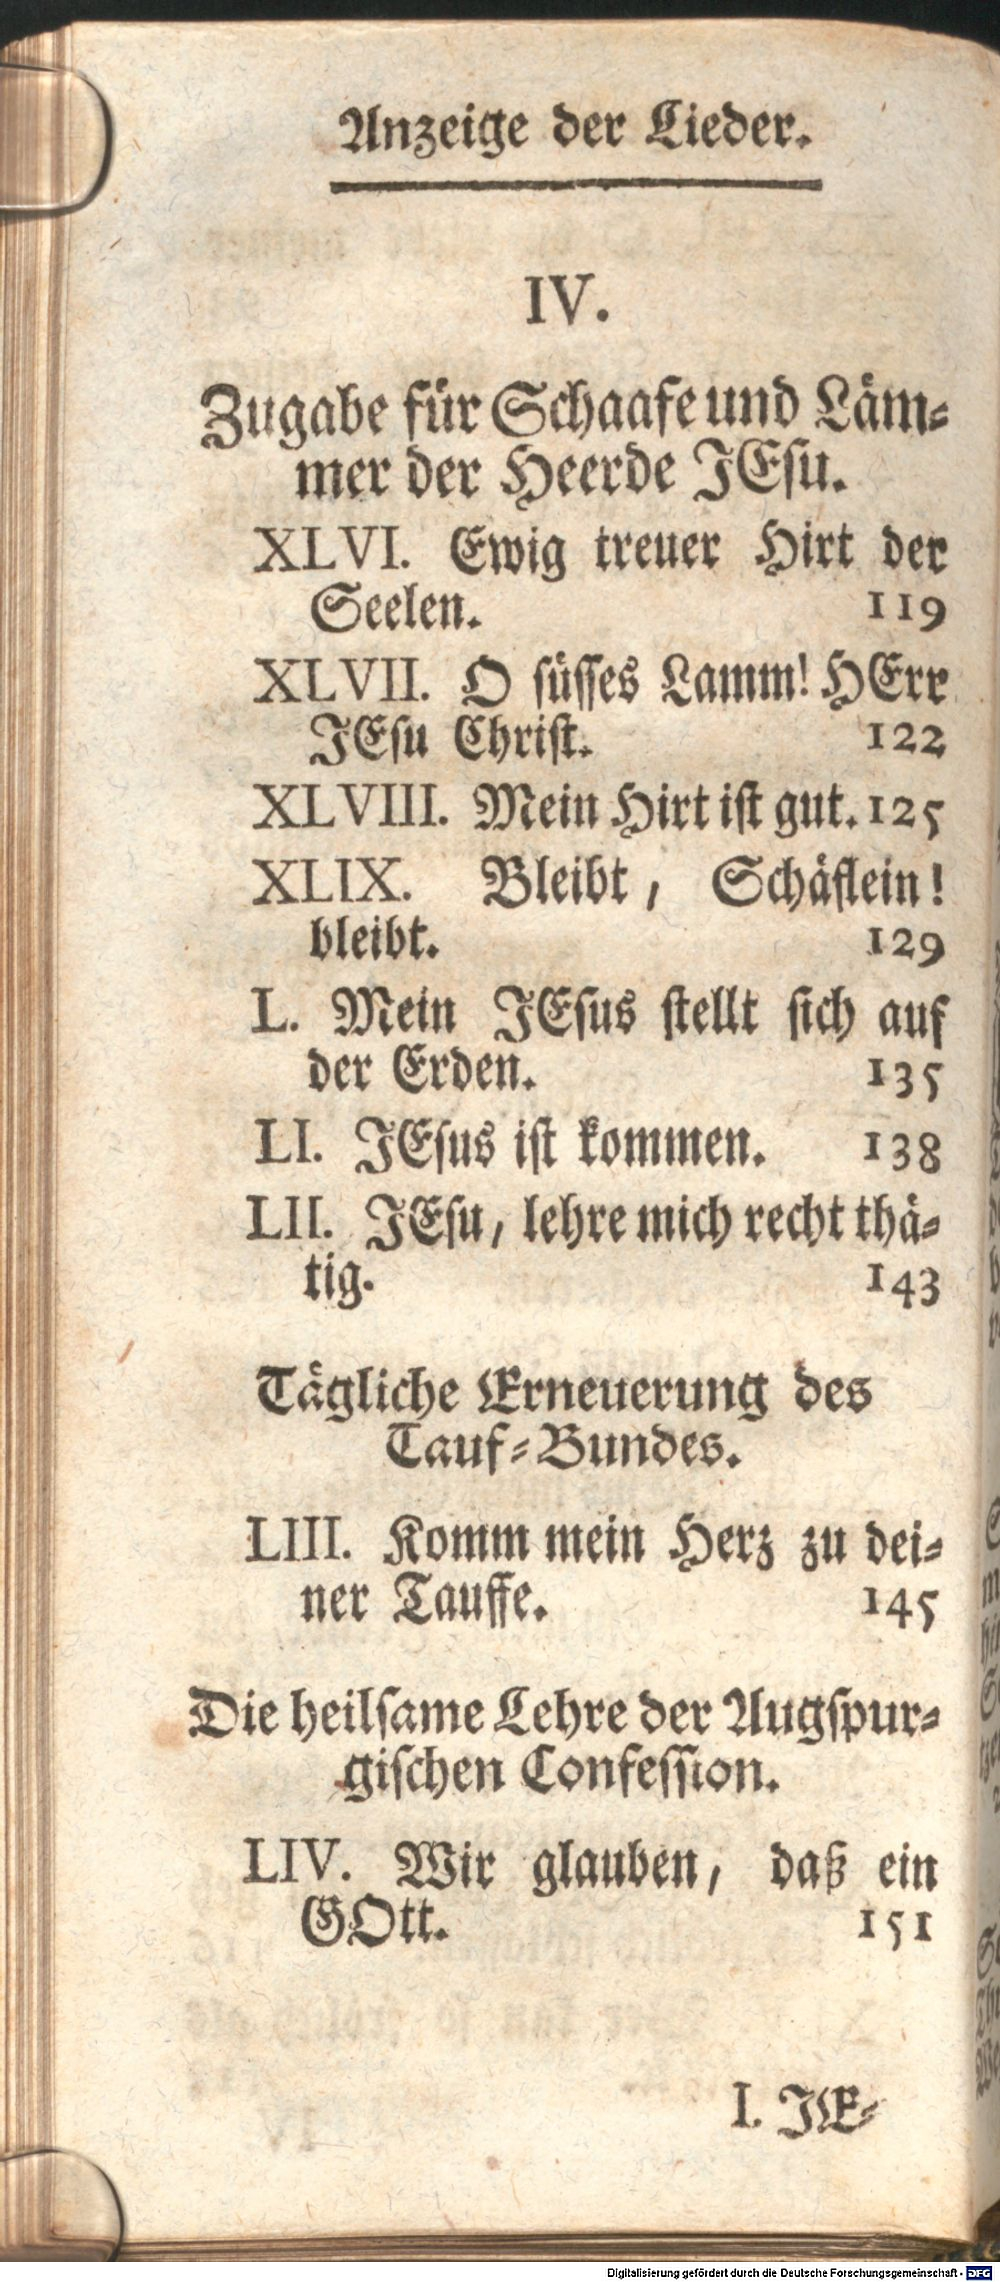 Anzeige der Lieder.
IV.
Zugabe für Schaafe und Läm-
mer der Heerde JEsu.
XLVI. Ewig treuer Hirt der
Seelen. 119
XLVII. O süsses Lamm! HErr
JEsu Christ. 122
XLVIII. Mein Hirt ist gut. 125
XLIX. Bleibt, Schäflein!
bleibt. 129
L. Mein JEsus stellt sich auf
der Erden. 135
LI. JEsus ist kommen. 138
LII. JEsu, lehre mich recht thä-
tig. 143
Tägliche Erneuerung des
Tauf-Bundes.
LIII. Komm mein Herz zu dei-
ner Tauffe. 145
Die heilsame Lehre der Augspur-
gischen Confession.
LIV. Wir glauben, daß ein
GOtt. 151
I. JE-
Digitalisierung gefördert durch die Deutsche Forschungsgemeinschaft - DFG